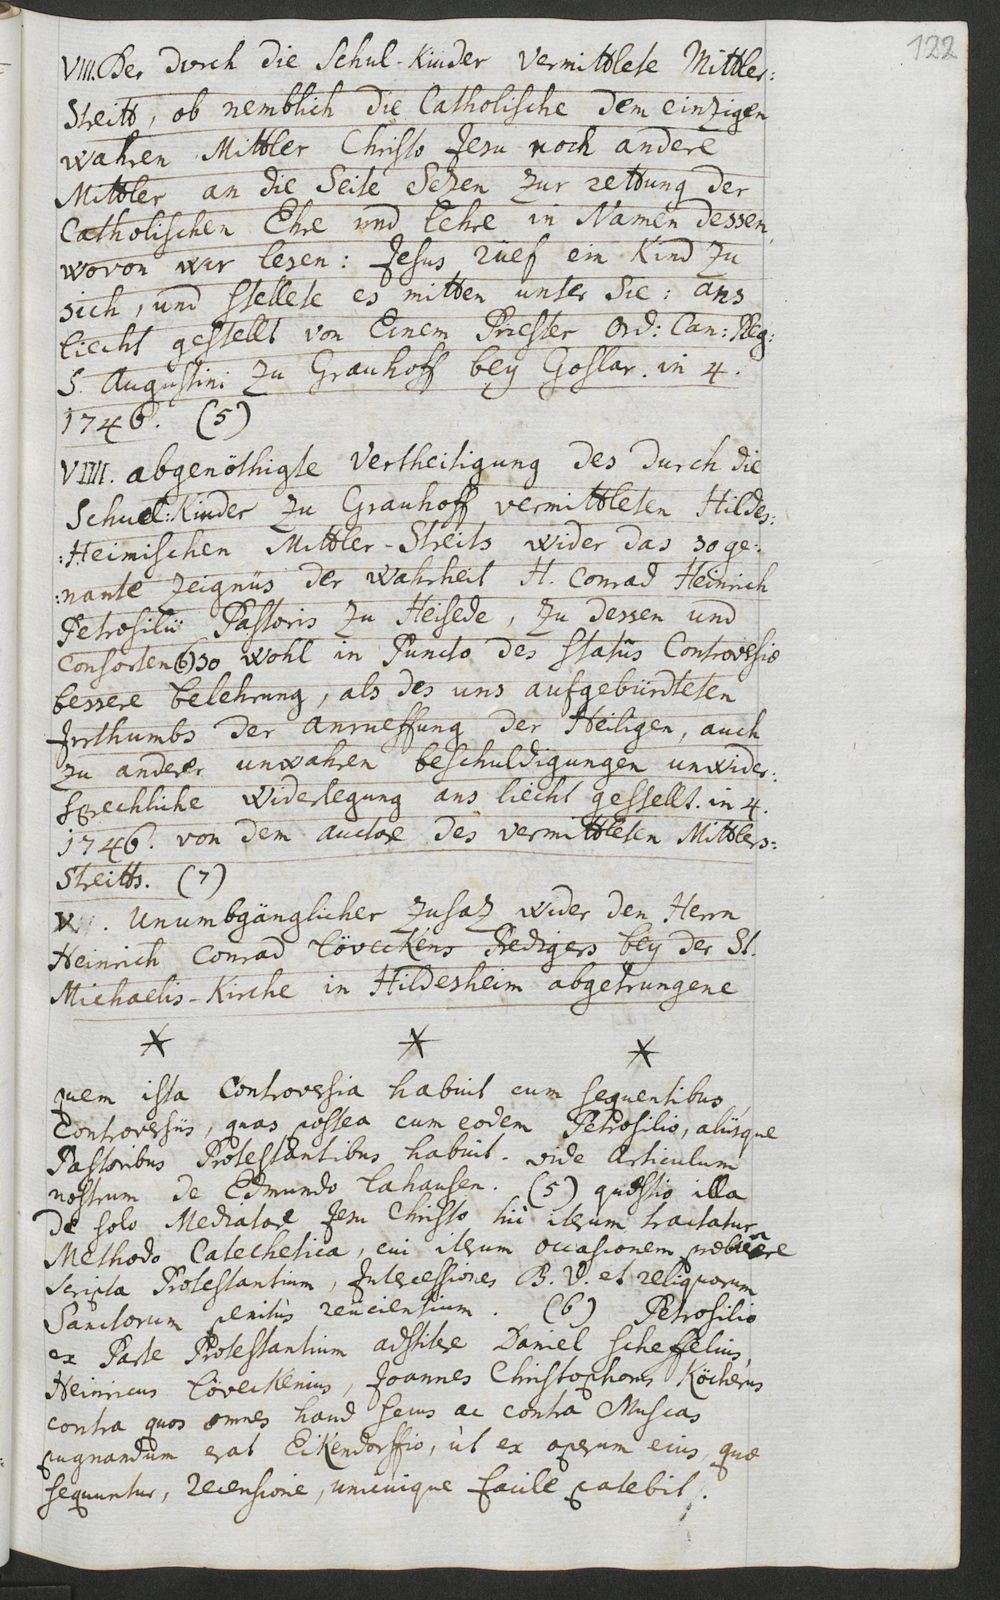 122
VIII. Der durch die Schul-Kinder vermittlete Mittler:
Streitt, ob nemblich die Catholische dem einzigen
wahren Mittler Christo Jesu noch andere
Mittler an die Seite Setzen zur rettung der
Catholischen Ehre und Lehre in Namen dessen,
wovon wir lesen: Jesus rüef ein Kind zu
sich, und stellete es mitten unter Sie: ans
liecht gestellt von Einem Priester Ord: Can: Reg:
S. Augustini zu Grauhoff bey Goslar. in 4.
1746. (5)
VIIII. abgenöthigte Vertheitigung des durch die
Schuel:Kinder zu Grauhoff vermittleten Hildes:
:Heimischen Mittler-Streits wider das soge:
:nante Zeignüs der Wahrheit H. Conrad Heinrich
Petrosilii Pastoris zu Heisede, zu dessen und
Consorten (6) so wohl in Puncto des Statûs Controversiæ
bessere belehrung, als des uns aufgebürdteten
Jrrthumbs der Anrueffung der Heiligen, auch
zu anderer unwahren beschuldigungen unwider:
sprechliche Widerlegung ans liecht gestellt. in 4.
1746. von dem auctore des vermittleten Mittlers:
Streitts. (7)
X. Unumbgänglicher Zusatz wider den Herrn
Heinrich Conrad Löveckens Predigers bey der St.
Michaelis-Kirche in Hildesheim abgetrungene
* * *
quem ista Controversia habuit cum sequentibus
Controversiis, quas postea cum eodem Petrosilio, aliisque
Pastoribus Protestantibus habuit. vide Articulum
nostrum de Edmundo Lahausen. (5) quæstio illa
de solo Mediatore Jesu Christo hic iterum tractatur
Methodo Catechetica, cui iterum occasionem
scripta Protestantium, Intercessiones B. V. et reliquorum
Sanctorum penitùs reiicientium. (6) Petrosilio
ex Parte Protestantium adstitere Daniel Scheffelius,
Heinricus Löveckenius, Joannes Christophorus Köcherus
contra quos omnes haud secus ac contra Muscas
pugnandum erat Eikendorffio, ùt ex operum eius, quæ
sequuntur, recensione, unicuique facile patebit.